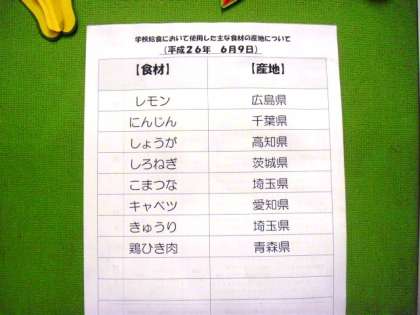 学校給食において使用した主な食材の産地について
(平成26年 6月9日)
【食材】 【産地】
レモン 広島県
にんじん 千葉県
しょうが 高知県
しろねぎ 茨城県
こまつな 埼玉県
キャベツ 愛知県
きゅうり 埼玉県
鶏ひき肉 青森県